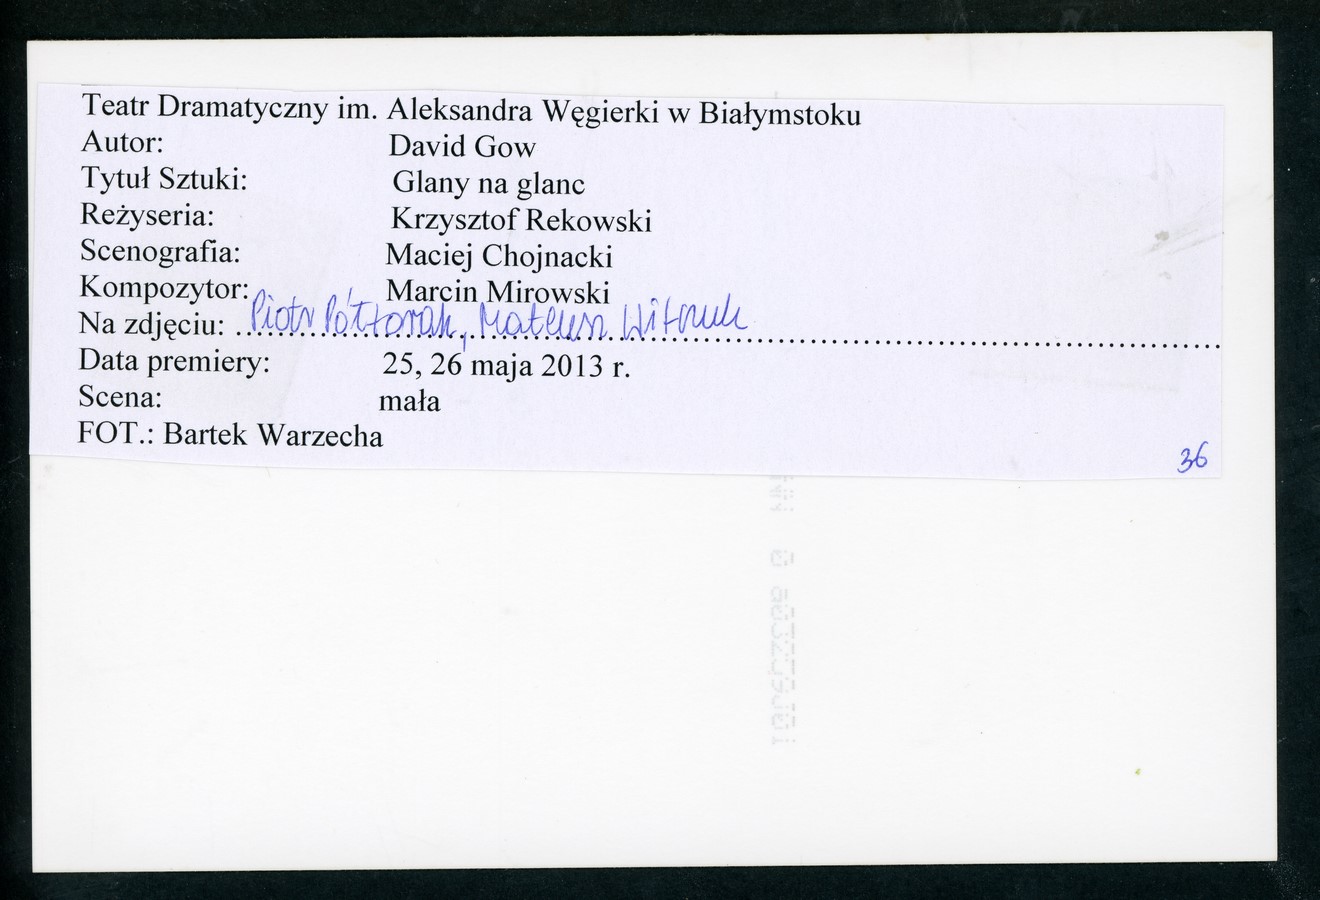 Teatr Dramatyczny im. Aleksandra Węgierki w Białymstoku
Autor: David Gow
Tytuł Sztuki: Glany na glanc
Reżyseria: Krzysztof Rekowski
Scenografia: Maciej Chojnacki
Kompozytor: Marcin Mirowski
Na zdjęciu: Piotr Półtorak, Mateusz Witczuk
Data premiery: 25, 26 maja 2013 r.
Scena: mała
FOT.: Bartek Warzecha
36